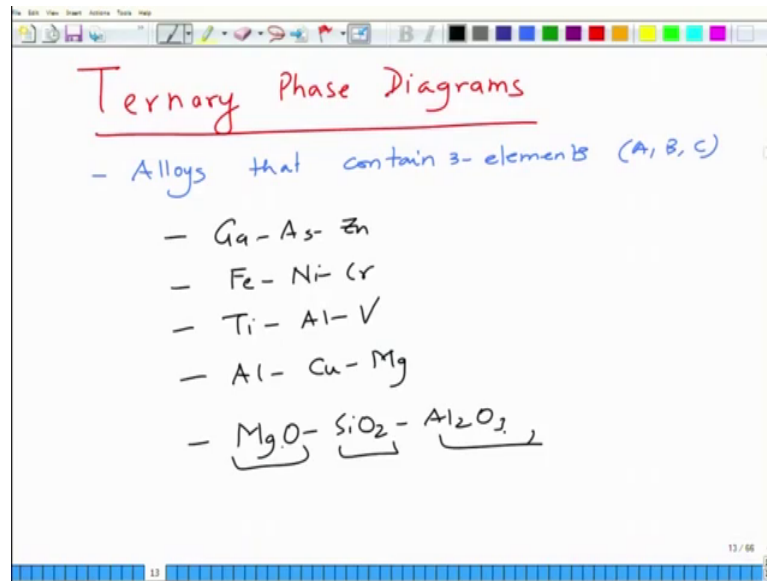 File Edit View Insert Actions Tools Help
B I
Ternary Phase Diagrams
- Alloys that contain 3-elements (A, B, C)
- Ga-As-Zn
- Fe-Ni-Cr
- Ti-Al-V
- Al-Cu-Mg
- MgO-SiO2-Al2O3
13/66
13